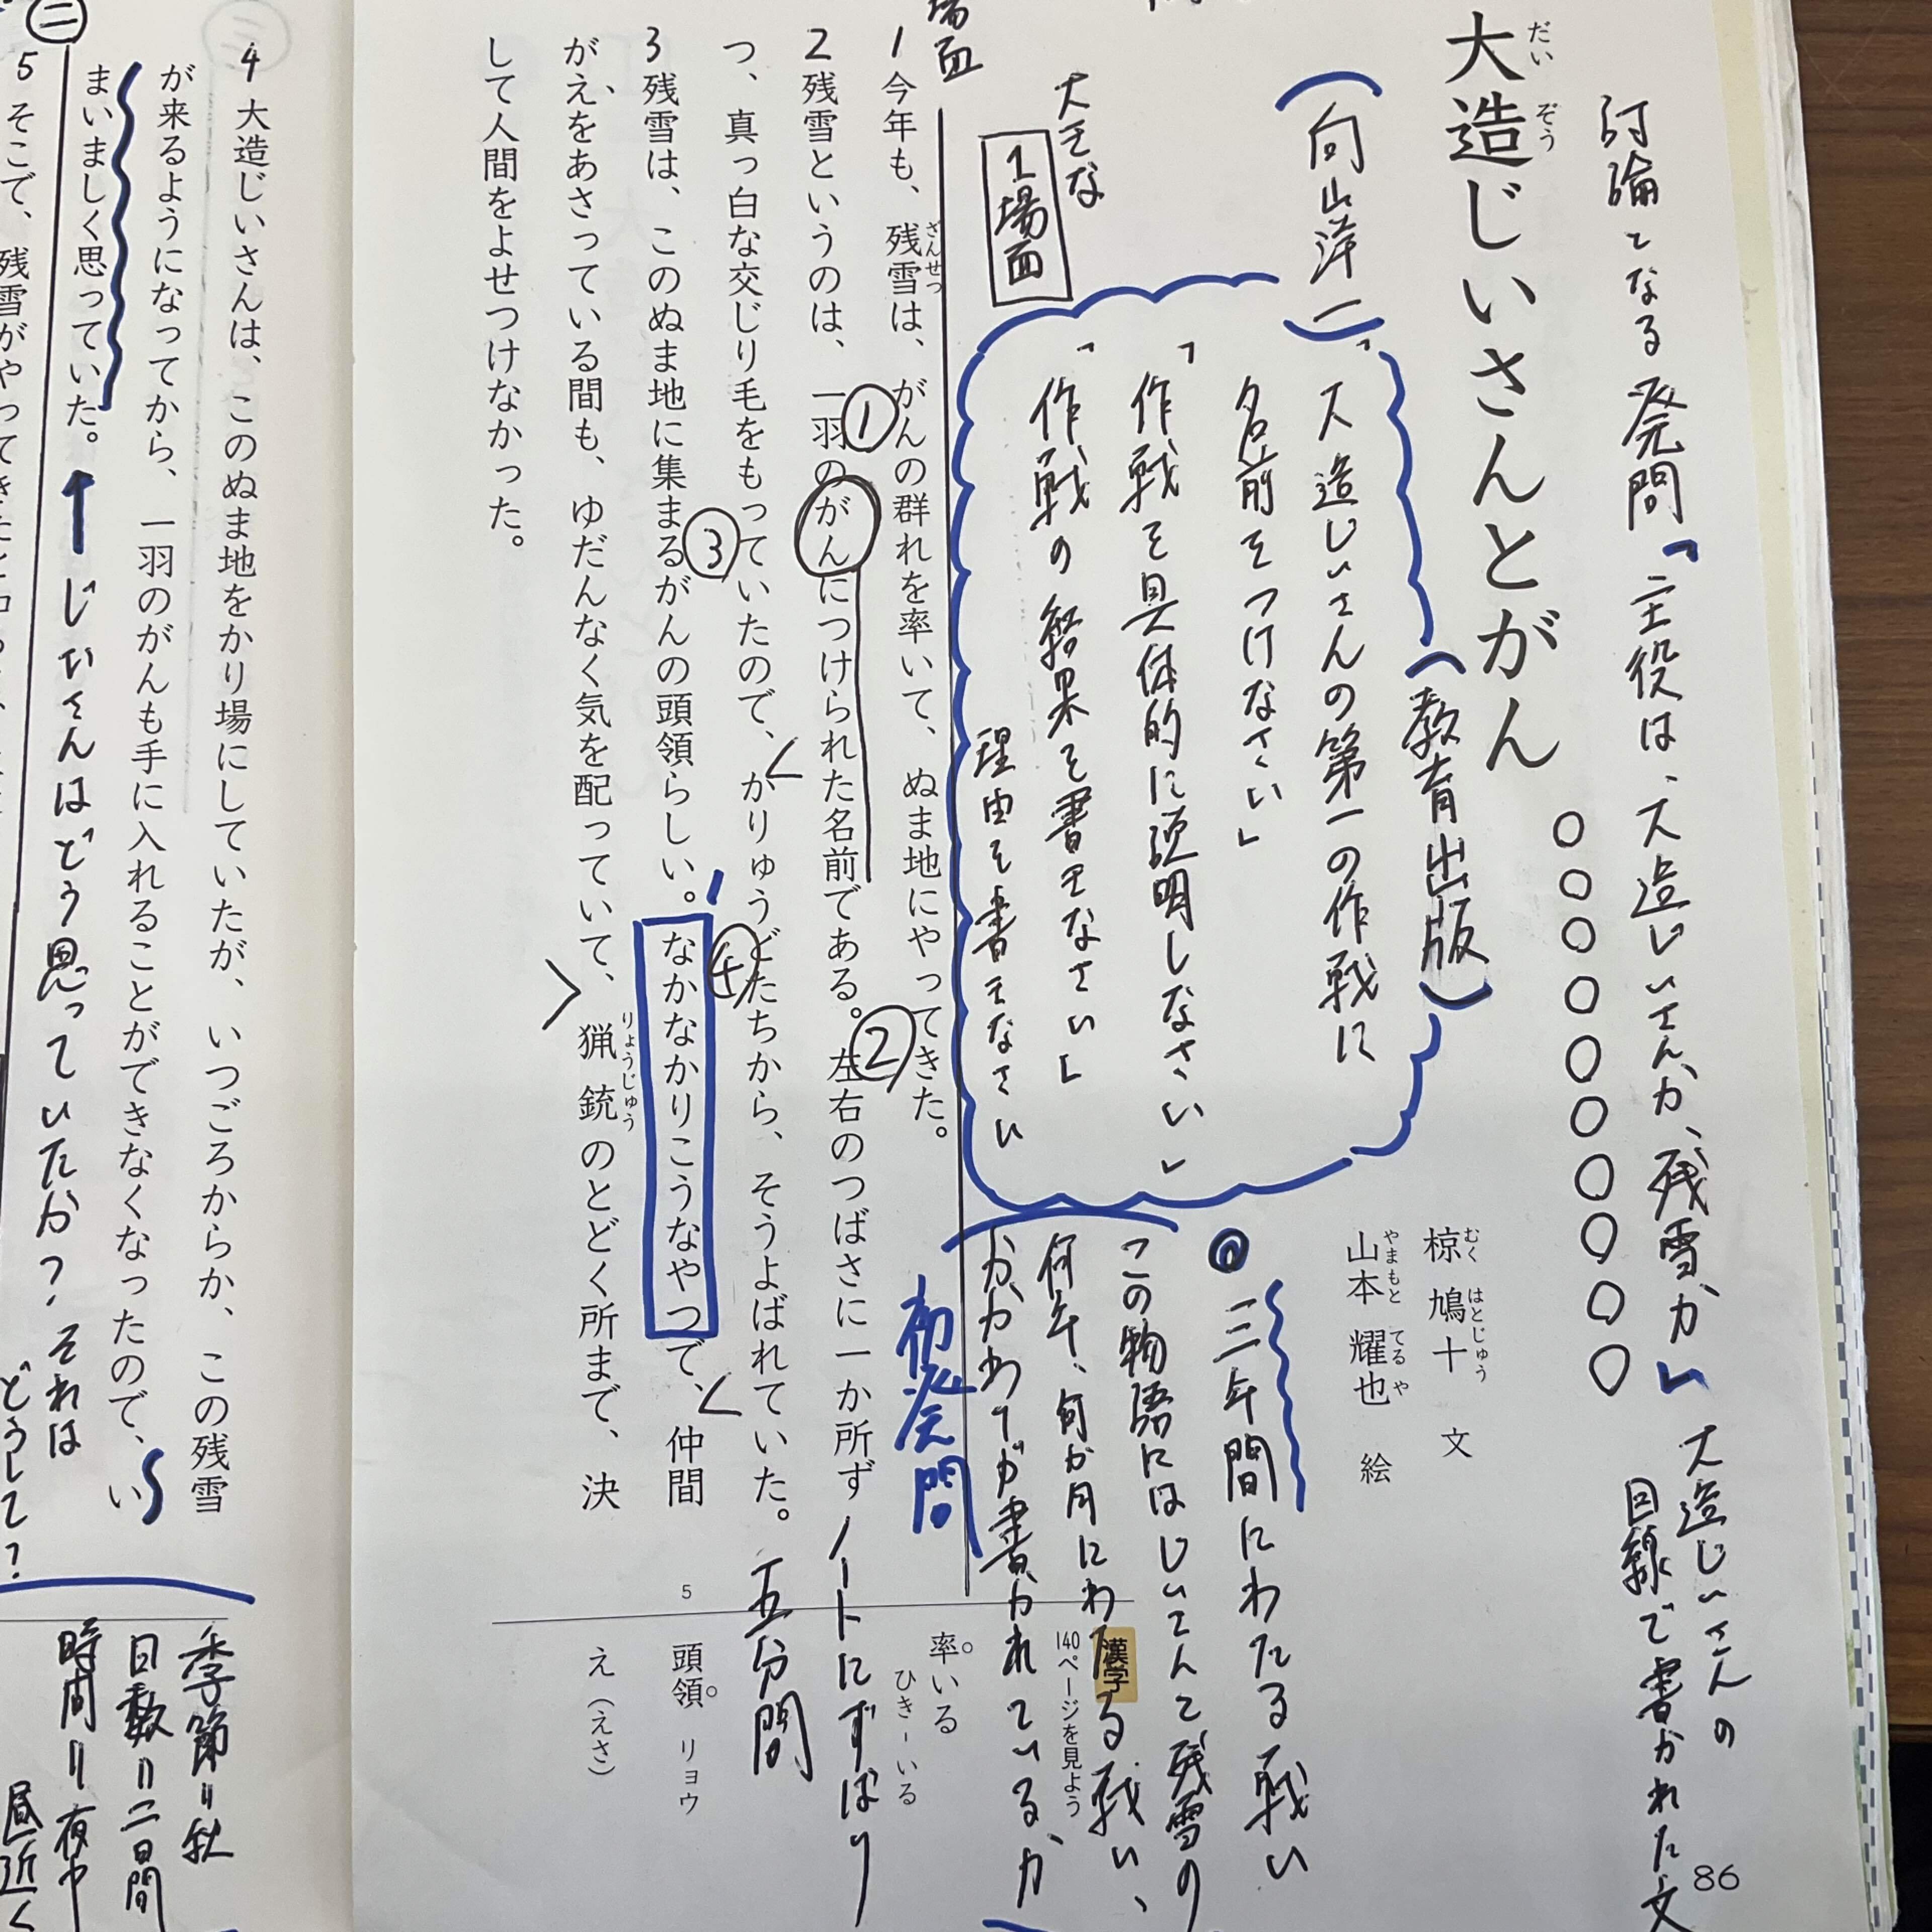 討論となる発問「主役は、大造じいさんか、残雪か」
大造じいさんの
目線で書かれた文
大造じいさんとがん
だいぞう
〇〇〇〇〇〇〇〇〇〇
(教育出版)
椋 鳩十 文
むく はとじゅう
山本 耀也 絵
やまもと てるや
(向山洋一)
「大造じいさんの第一の作戦に
名前をつけなさい」
「作戦を具体的に説明しなさい」
「作戦の結果を書きなさい」
理由を書きなさい
◎三年間にわたる戦い
この物語にはじいさんと残雪の
何年、何か月にわたる戦い、
かかわりが書かれているか
布発問
ノートにずばり
五分間
大きな
1場面
場面
1 今年も、残雪は、がんの群れを率いて、ぬま地にやってきた。
ざんせつ
①
2 残雪というのは、一羽のがんにつけられた名前である。左右のつばさに一か所ず
②
つ、真っ白な交じり毛をもっていたので、かりゅうどたちから、そうよばれていた。
③
④
3 残雪は、このぬま地に集まるがんの頭領らしい。なかなかりこうなやつで、仲間
がえをあさっている間も、ゆだんなく気を配っていて、猟銃のとどく所まで、決
りょうじゅう
して人間をよせつけなかった。
5
漢字
140ページを見よう
率いる
ひき-いる
頭領 リョウ
え(えさ)
86
4 大造じいさんは、このぬま地をかり場にしていたが、いつごろからか、この残雪
が来るようになってから、一羽のがんも手に入れることができなくなったので、い
まいましく思っていた。
↑じいさんはどう思っていたか?それは
どうして?
㊁
5 そこで、残雪がやってきたと
季節=秋
日数=二日間
時間=夜中
昼近く